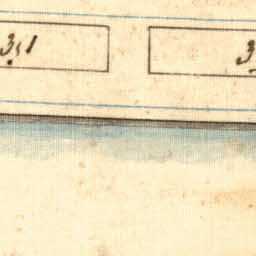 3,1
3